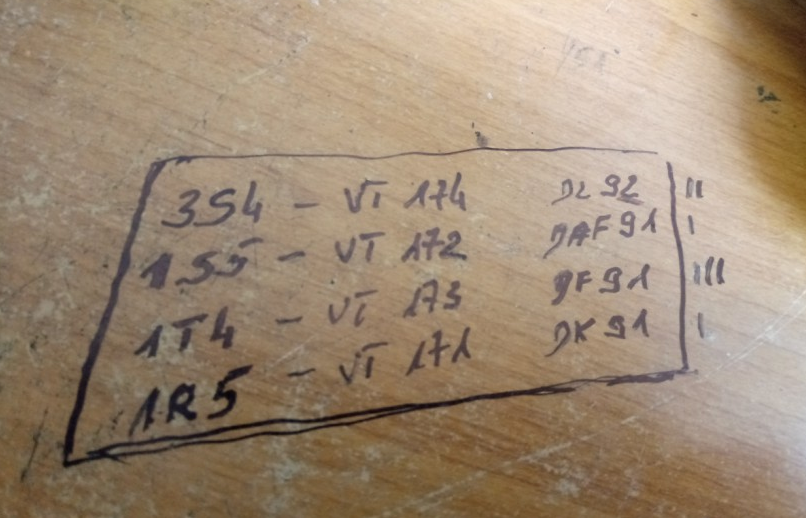 3S4 - VT 174 DL 92 II
1S5 - VT 172 DAF 91 I
1T4 - VT 173 DF 91 III
1R5 - VT 171 DK 91 I